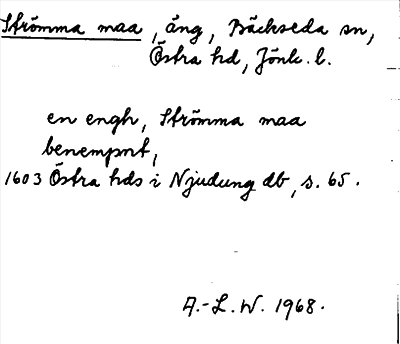 Strömma maa, äng, Bäckseda sn,
Östra hd, Jönk. l.
en engh, Strömma maa
benempnt,
1603 Östra hds i Njudung db, s. 65.
A.-L. W. 1968.